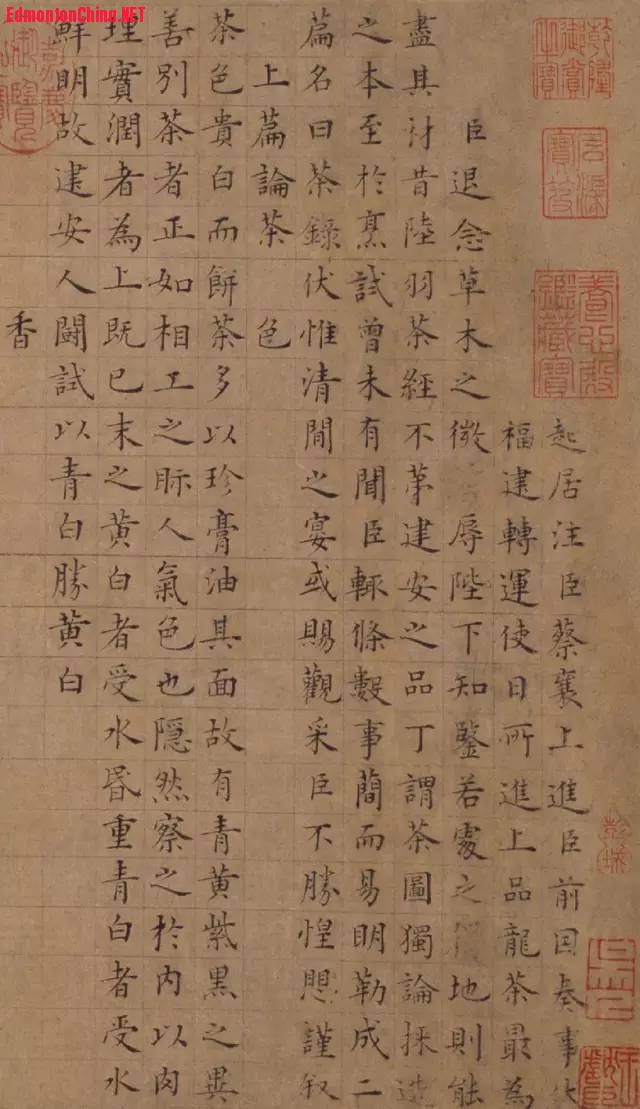 EdmontonChina.NET
乾隆御賞之寶
石渠寶笈
養心殿鑑藏寶
嘉慶御覽之寶
起居注臣蔡襄上進臣前因奏事伏
福建轉運使日所進上品龍茶最為
臣退念草木之微辱陛下知鑒若處之得地則能
盡其材昔陸羽茶經不苐建安之品丁謂茶圖獨論採造
之本至於烹試曾未有聞臣輒條數事簡而易明勒成二
篇名曰茶錄伏惟清閒之宴或賜觀采臣不勝惶愳謹叙
上篇論茶 色
茶色貴白而餅茶多以珍膏油其面故有青黃紫黑之異
善別茶者正如相工之眎人氣色也隱然察之於內以肉
理實潤者為上既已末之黃白者受水昏重青白者受水
鮮明故建安人鬭試以青白勝黃白
香